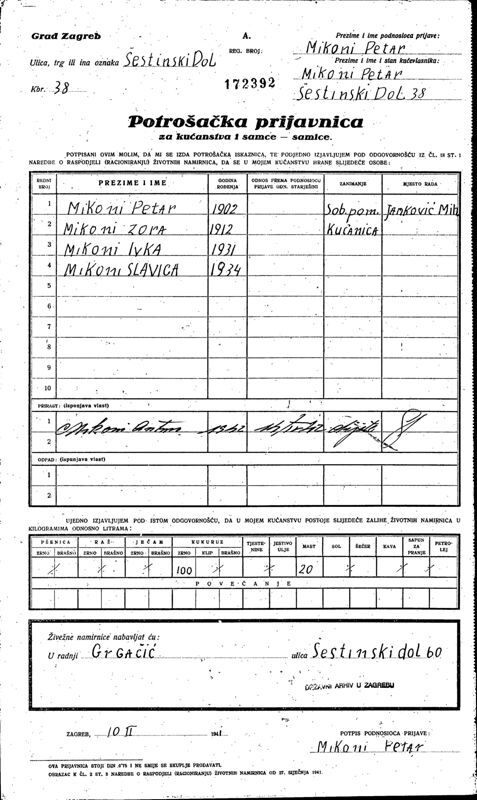 Grad Zagreb
Ulica, trg ili ina oznaka Šestinski Dol
Kbr. 38
A.
REG. BROJ:
172392
Prezime i ime podnosioca prijave:
Mikoni Petar
Prezime i ime i stan kućevlasnika:
Mikoni Petar
Šestinski Dol 38
Potrošačka prijavnica
za kućanstva i samce — samice.
POTPISANI OVIM MOLIM, DA MI SE IZDA POTROŠAČKA ISKAZNICA, TE PODJEDNO IZJAVLJUJEM POD ODGOVORNOŠĆU IZ ČL. 18 ST. 1
NAREDBE O RASPODJELI (RACIONIRANJU) ŽIVOTNIH NAMIRNICA, DA SE U MOJEM KUĆANSTVU HRANE SLIJEDEĆE OSOBE:
REDNI BROJ PREZIME I IME GODINA ROĐENJA ODNOS PREMA PODNOSIOCU PRIJAVE ODN. STARJEŠINI ZANIMANJE MJESTO RADA
1 Mikoni Petar 1902 Sob. pom. Janković Mih
2 Mikoni Zora 1912 Kućanica
3 Mikoni Ivka 1931
4 Mikoni Slavica 1934
5
6
7
8
9
10
PRIRAST: (ispunjava vlast)
1 Mikoni Antun 1942
2
ODPAD: (ispunjava vlast)
1
2
UJEDNO IZJAVLJUJEM POD ISTOM ODGOVORNOŠĆU, DA U MOJEM KUĆANSTVU POSTOJE SLIJEDEĆE ZALIHE ŽIVOTNIH NAMIRNICA U
KILOGRAMIMA ODNOSNO LITRAMA:
PŠENICA RAŽ JEČAM KUKURUZ TJESTENINE JESTIVO ULJE MAST SOL ŠEĆER KAVA SAPUN ZA PRANJE PETROLEJ
ZRNO BRAŠNO ZRNO BRAŠNO ZRNO BRAŠNO ZRNO KLIP BRAŠNO
100 20
POVEĆANJE
Živežne namirnice nabavljat ću:
U radnji Grgačić ulica Šestinski dol 60
DRŽAVNI ARHIV U ZAGREBU
ZAGREB, 10 II 1941
POTPIS PODNOSIOCA PRIJAVE:
Mikoni Petar
OVA PRIJAVNICA STOJI DIN 0.75 I NE SMIJE SE SKUPLJE PRODAVATI.
OBRAZAC K ČL. 2 ST. 3 NAREDBE O RASPODJELI (RACIONIRANJU) ŽIVOTNIH NAMIRNICA OD 27. SIJEČNJA 1941.